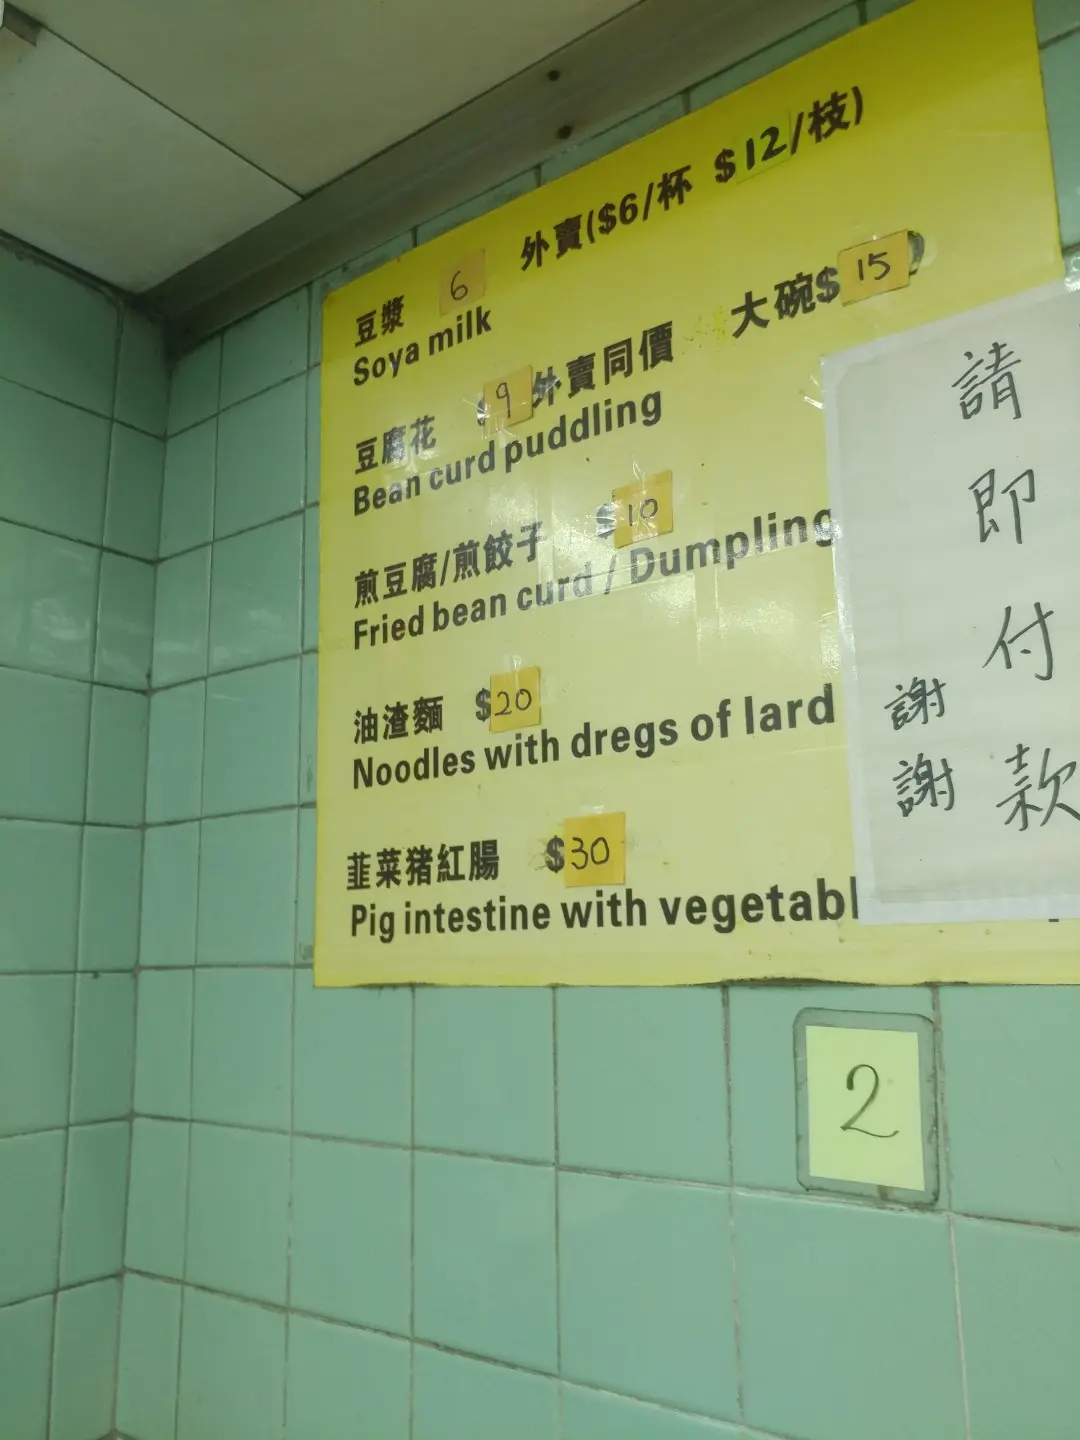 豆漿 6 外賣($6/杯 $12/枝)
Soya milk
豆腐花 $9 外賣同價 大碗$15
Bean curd puddling
煎豆腐/煎餃子 $10
Fried bean curd / Dumpling
油渣麵 $20
Noodles with dregs of lard
韮菜猪紅腸 $30
Pig intestine with vegetabl
請即付款
謝謝
2